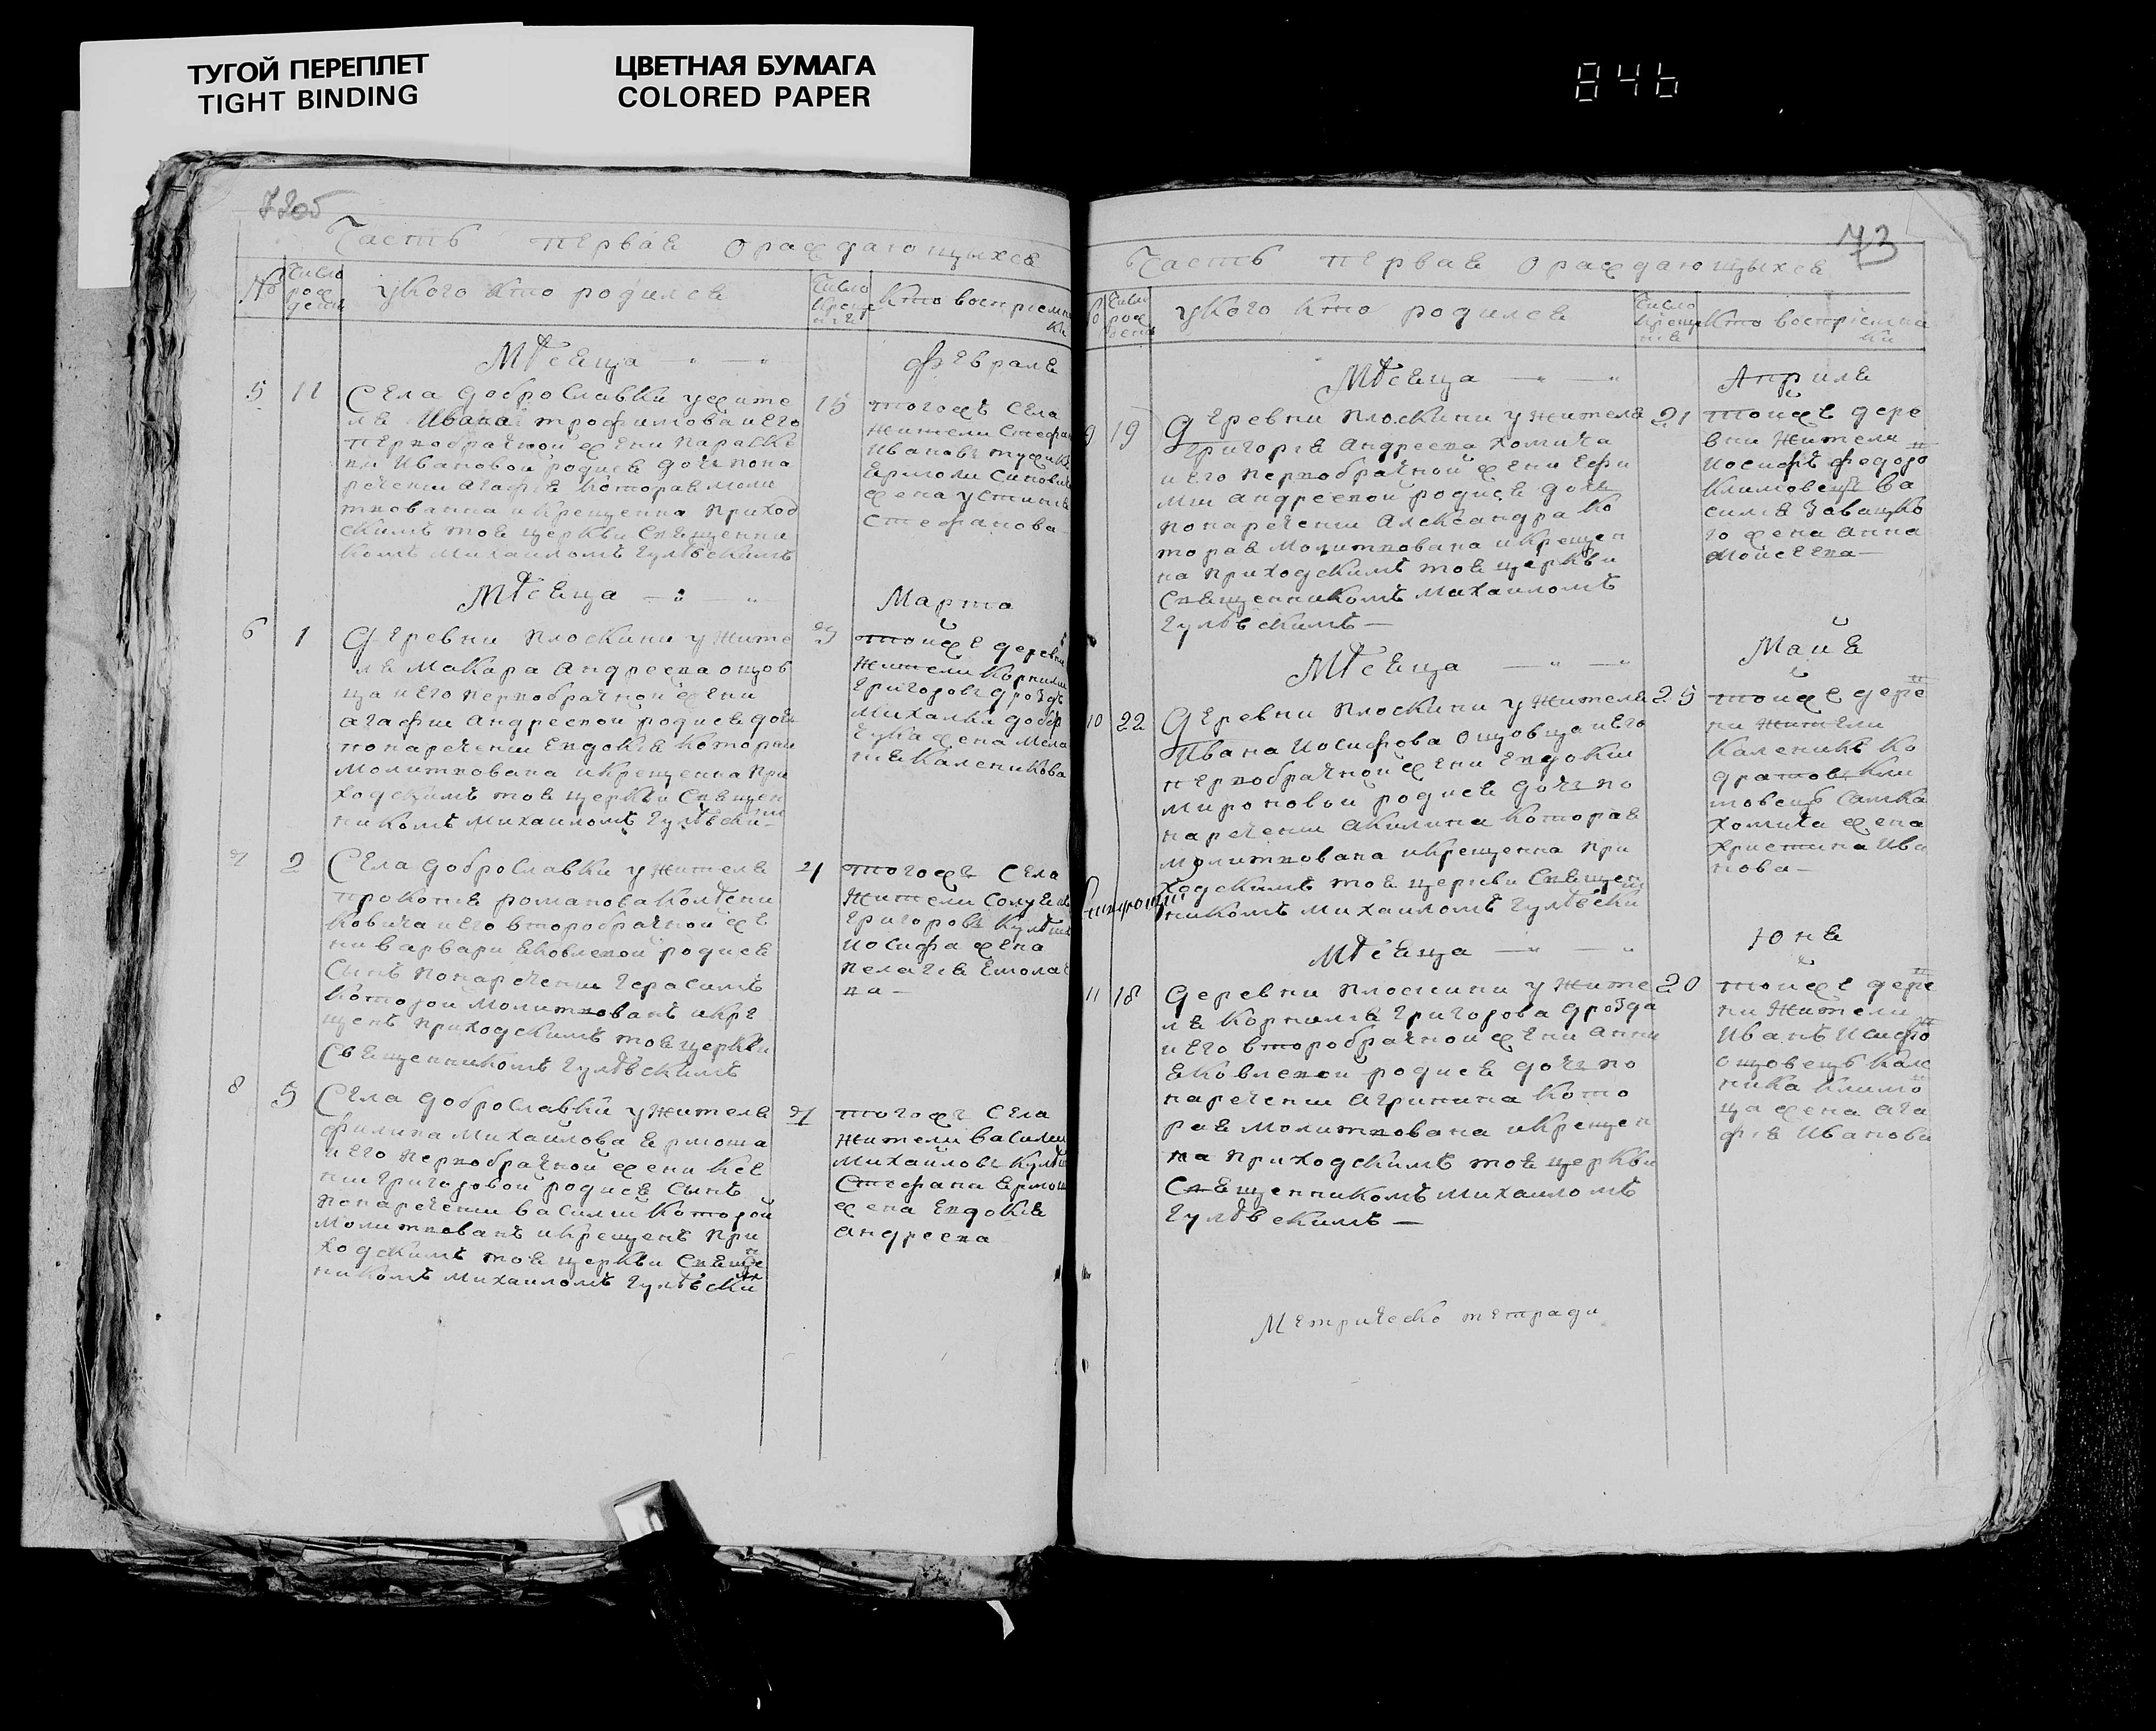 ТУГОЙ ПЕРЕПЛЕТ
TIGHT BINDING
ЦВЕТНАЯ БУМАГА
COLORED PAPER
846
72об
Часть первая о раждающыхся
№
Число рож дени
у кого кто родился
Число крещ ния
Кто восприемни ки
Мѣсяца
Февраля
5
11
Села Доброславки у жите
ля Ивана Трофимова и его
первобрачной жени Параске
ви Ивановой родися дочь пона
речении Агафия которая моли
твованна и крещенна приход
скимъ тоя церкви священни
комъ Михаиломъ Гулѣвскимъ
15
тогожъ села
жители Стефан
Ивановъ
Ермоли
жена Устиния
Стефанова
Мѣсяца
Марта
6
1
Деревни Плоскини у жите
ля Макара Андреева Ошов
ца и его первобрачной жени
Агафии Андреевой родися дочь
по наречении Евдокия которая
молитвована и крещенна при
ходскимъ тоя церкви священ
никомъ Михаиломъ Гулѣвски
тойже деревни
жители Корнили
Григоровъ Дроздъ
Михалки
жена Мела
ния Каленикова
7
2
Села Доброславки у жителя
Прокопия Романова
ковича и его второбрачной же
ни Варвари Яковлевой родися
сынъ по наречении Герасимъ
которой молитвованъ и кре
щенъ приходскимъ тоя церкви
священникомъ Гулѣвскимъ
4
тогоже села
жители
Григоровъ
Иосифа жена
Пелагия
ва
8
5
Села Доброславки у жителя
Филипа Михайлова Ермоша
и его первобрачной жени Ксе
нии Григоровой родися сынъ
по наречении Василий которой
молитвованъ и крещенъ при
ходскимъ тоя церкви священ
никомъ Михаиломъ Гулѣвски
тогоже села
жители Василий
Михайловъ
Стефана Ермош
жена Евдокия
Андреева
73
Часть первая о раждающыхся
Число рож дени
у кого кто родился
Число крещ ния
Кто восприемни ки
Мѣсяца
Априля
9
19
Деревни Плоскини у жителя
Григория Андреева Хомича
и его первобрачной жени Ефи
мии Андреевой родися дочь
по наречении Александра ко
торая молитвована и крещен
на приходскимъ тоя церкви
священникомъ Михаиломъ
Гулѣвскимъ
21
тойже дере
вни жители
Иосифъ Федоро
Климовецъ Ва
силя Завацко
го жена Анна
Моисеева
Мѣсяца
Майя
10
22
Деревни Плоскини у жителя
Ивана Иосифова Ошовца и его
первобрачной жени Евдокии
Мироновой родися дочь по
наречении Акилина которая
молитвована и крещенна при
ходскимъ тоя церкви священ
никомъ Михаиломъ Гулѣвски
25
тойже дере
ни жители
Каленикъ Ко
дратов Кли
мовецъ Самка
Хомича жена
Христина Ива
нова
Мѣсяца
Юня
11
18
Деревни Плоскини у жите
ля Корнилия Григорова Дрозда
и его второбрачной жени Анни
Яковлевой родися дочь по
наречении Агрипина кото
рая молитвована и крещен
на приходскимъ тоя церкви
священникомъ Михаиломъ
Гулѣвскимъ
20
тойже дере
ни жители
Иванъ Исифо
Ошовецъ Кале
ника Климо
ца жена Ага
фия Иванова
Метрическо тетради